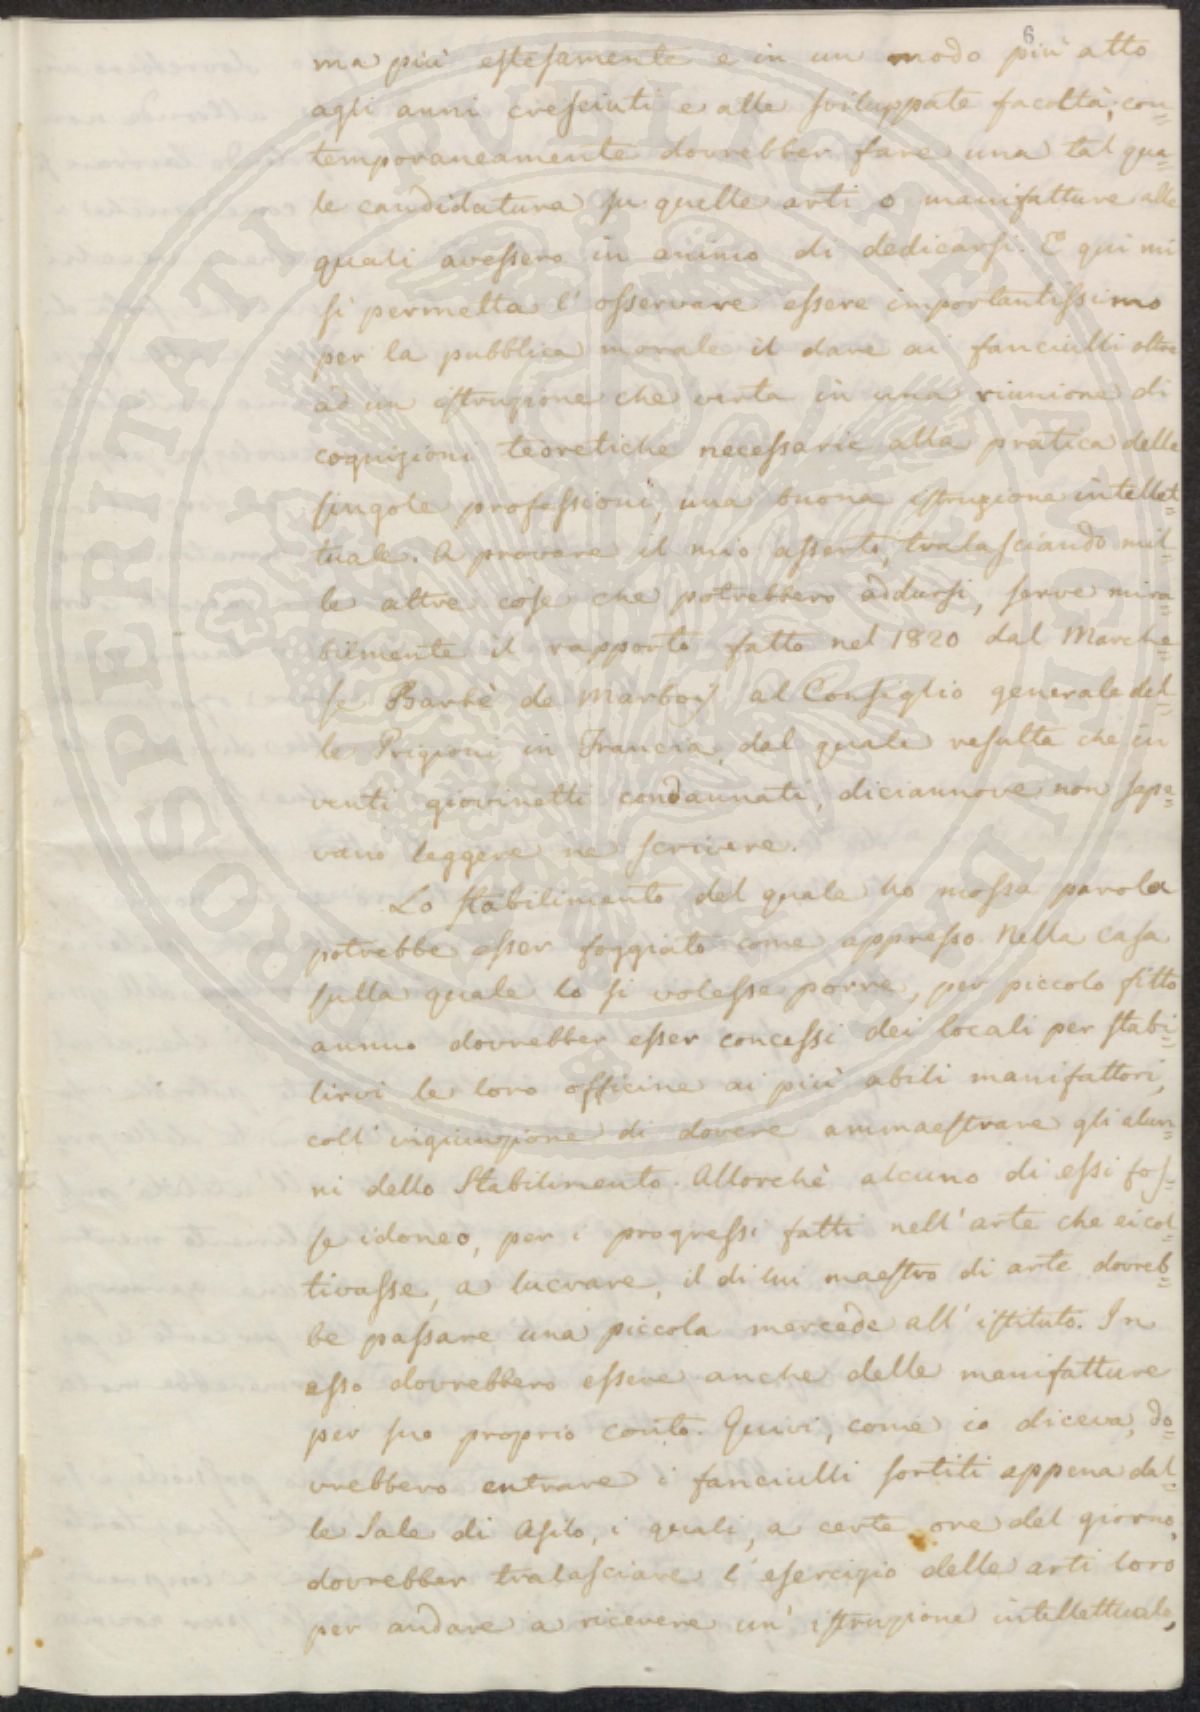 6
ma più estesamente e in un modo più atto
agli anni cresciuti e alle sviluppate facoltà; con=
temporaneamente dovrebber fare una tal qua=
le candidatura su quelle arti o manifatture alle
quali avessero in animo di dedicarsi. E qui mi
si permetta l'osservare essere importantissimo
per la pubblica morale il dare ai fanciulli oltre
ad un istruzione che verta in una riunione di
cognizioni teoretiche necessarie alla pratica delle
singole professioni, una buona istruzione intellet=
tuale. A provare il mio asserto, tralasciando mil=
le altre cose che potrebbero addursi, serve mira=
bilmente il rapporto fatto nel 1820 dal Marche=
se Barbè de Marboy al Consiglio generale del=
le Prigioni in Francia, dal quale resulta che in
venti giovinetti condannati, diciannove non sape=
vano leggere ne scrivere.
Lo stabilimento del quale ho mossa parola
potrebbe esser foggiato come appresso. Nella casa
sulla quale lo si volesse porre, per piccolo fitto
annuo dovrebber esser concessi dei locali per stabi=
lirvi le loro officine ai più abili manifattori,
coll'ingiunzione di dovere ammaestrare gli alun=
ni dello Stabilimento. Allorchè alcuno di essi fos=
se idoneo, per i progressi fatti nell'arte che ei col=
tivasse, a lucrare, il di lui maestro di arte dovreb=
be passare una piccola mercede all'istituto. In
esso dovrebbero essere anche delle manifatture
per suo proprio conto. Quivi, come io diceva, do=
vrebbero entrare i fanciulli sortiti appena dal=
le Sale di Asilo, i quali, a certe ore del giorno,
dovrebber tralasciare l'esercizio delle arti loro
per andare a ricevere un'istruzione intellettuale,
PROSPERITATI PVBLICAE AVGENDAE